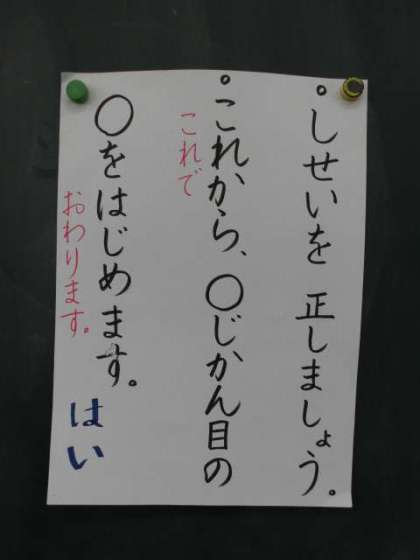 ・しせいを正しましょう。
・これから、〇じかん目の
これで
〇をはじめます。
おわります。
はい